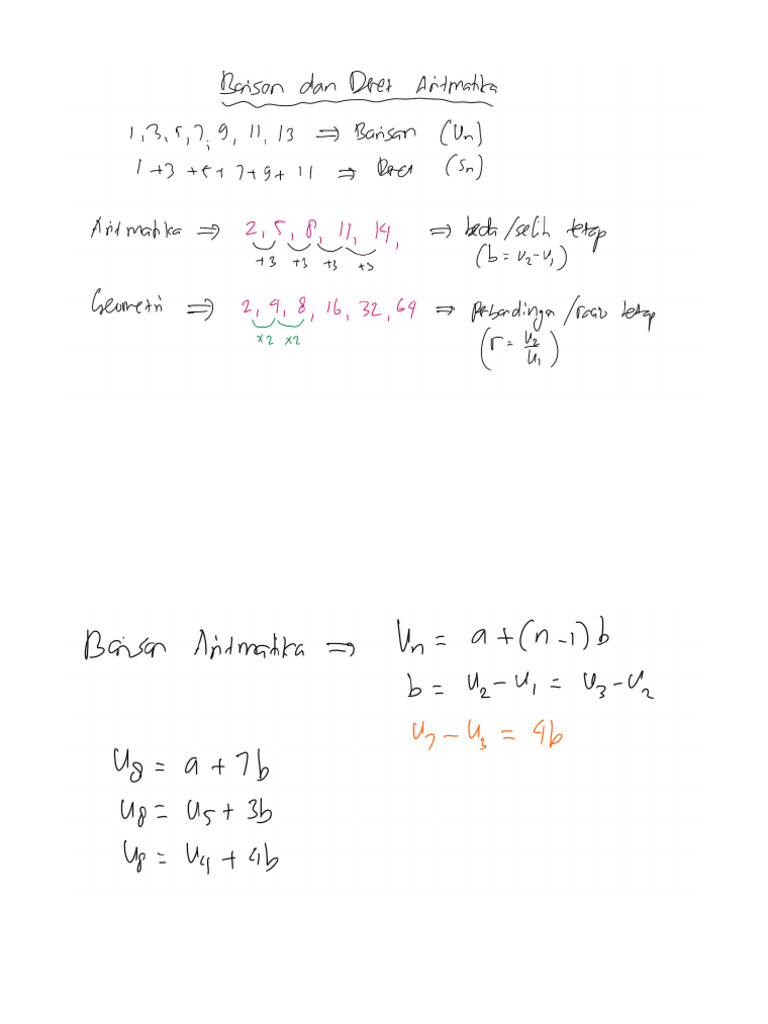 Barisan dan Deret Aritmatika
1, 3, 5, 7, 9, 11, 13 ⇒ Barisan (Un)
1 + 3 + 5 + 7 + 9 + 11 ⇒ Deret (Sn)
Aritmatika ⇒ 2, 5, 8, 11, 14, ⇒ beda/selih tetap
+3 +3 +3 +3 (b = U₂ - U₁)
Geometri ⇒ 2, 4, 8, 16, 32, 64 ⇒ perbandingan/rasio tetap
×2 ×2 (r = U₂/U₁)
Barisan Aritmatika ⇒ Un = a + (n - 1) b
b = U₂ - U₁ = U₃ - U₂
U₇ - U₃ = 4b
U₈ = a + 7b
U₈ = U₅ + 3b
U₈ = U₄ + 4b